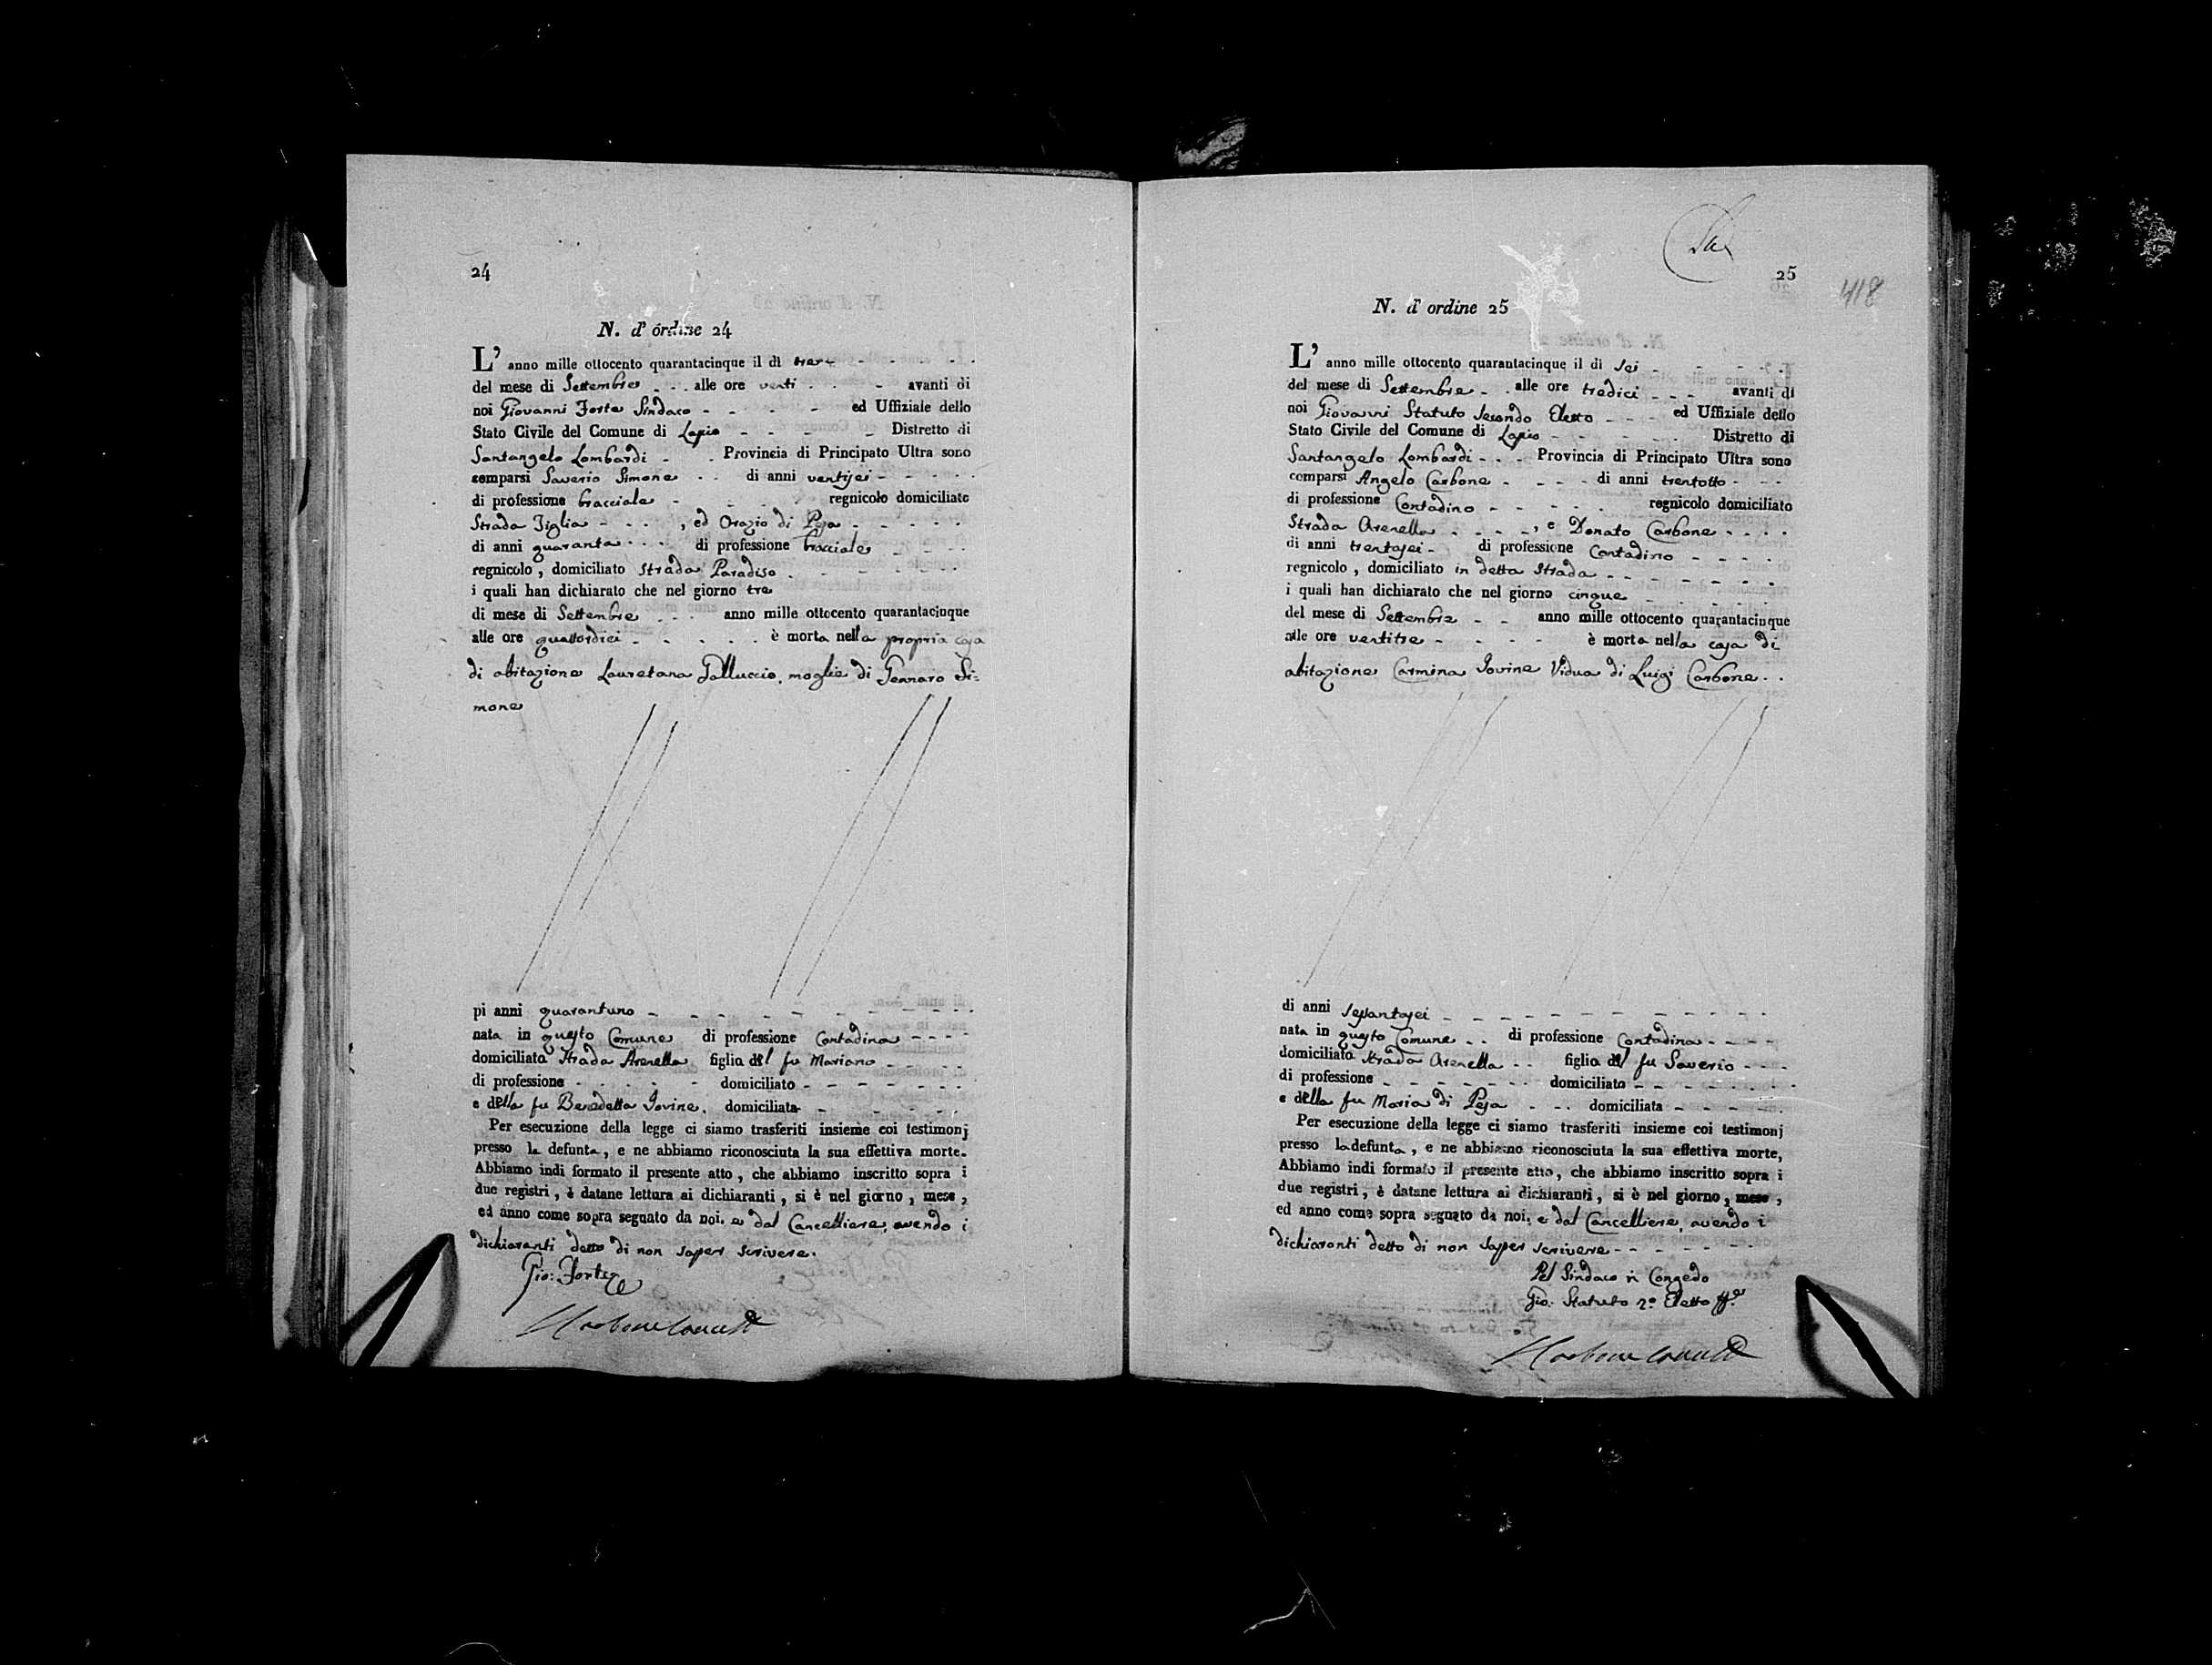 24
N. d' ordine 24
L' anno mille ottocento quarantacinque il dì tre
del mese di Settembre alle ore venti avanti di
noi Giovanni Forte Sindaco ed Uffiziale dello
Stato Civile del Comune di Lapio Distretto di
Santangelo Lombardi Provincia di Principato Ultra sono
comparsi Saverio Simone di anni ventisei
di professione bracciale regnicolo domiciliato
Strada Figlia , ed Orazio di Pesa
di anni quaranta di professione bracciale
regnicolo , domiciliato Strada Paradiso
i quali han dichiarato che nel giorno tre
di mese di Settembre anno mille ottocento quarantacinque
alle ore quattordici è morta nella propria casa
di abitazione Lauretana Galluccio, moglie di Gennaro Si=
mone
pi anni quarantuno
nata in questo Comune di professione Contadina
domiciliata Strada Arenella figlia del fu Mariano
di professione domiciliato
e della fu Benedetta Iovine, domiciliata
Per esecuzione della legge ci siamo trasferiti insieme coi testimonj
presso la defunta, e ne abbiamo riconosciuta la sua effettiva morte.
Abbiamo indi formato il presente atto, che abbiamo inscritto sopra i
due registri, è datane lettura ai dichiaranti, si è nel giorno, mese,
ed anno come sopra segnato da noi, e dal Cancelliere, avendo i
dichiaranti detto di non saper scrivere.
Gio: Forte
25
418
N. d' ordine 25
L' anno mille ottocento quarantacinque il dì sei
del mese di Settembre alle ore tredici avanti di
noi Giovanni Statuto Secondo Eletto ed Uffiziale dello
Stato Civile del Comune di Lapio Distretto di
Santangelo Lombardi Provincia di Principato Ultra sono
comparsi Angelo Carbone di anni trentotto
di professione Contadino regnicolo domiciliato
Strada Arenella , e Donato Carbone
di anni trentasei di professione Contadino
regnicolo , domiciliato in detta Strada
i quali han dichiarato che nel giorno cinque
del mese di Settembre anno mille ottocento quarantacinque
alle ore ventitre è morta nella casa di
abitazione Carmina Iovine Vidua di Luigi Carbone
di anni sessantasei
nata in questo Comune di professione Contadina
domiciliata Strada Arenella figlia del fu Saverio
di professione domiciliato
e della fu Maria di Pesa domiciliata
Per esecuzione della legge ci siamo trasferiti insieme coi testimonj
presso la defunta, e ne abbiamo riconosciuta la sua effettiva morte,
Abbiamo indi formato il presente atto, che abbiamo inscritto sopra i
due registri, è datane lettura ai dichiaranti, si è nel giorno, mese,
ed anno come sopra segnato da noi, e dal Cancelliere, avendo i
dichiaranti detto di non saper scrivere
Pel Sindaco in Congedo
Gio: Statuto 2º Eletto